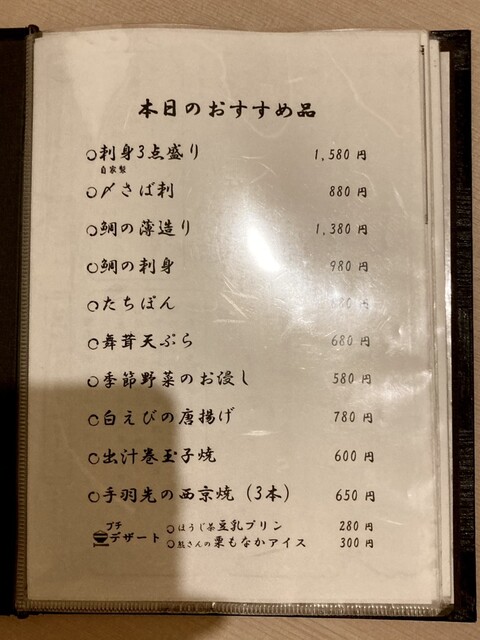 本日のおすすめ品
○刺身3点盛り 1,580円
自家製
○〆さば刺 880円
○鯛の薄造り 1,380円
○鯛の刺身 980円
○たちぽん 80円
○舞茸天ぷら 680円
○季節野菜のお浸し 580円
○白えびの唐揚げ 780円
○出汁巻玉子焼 600円
○手羽先の西京焼（3本） 650円
プチ
デザート
○ほうじ茶豆乳プリン 280円
○熊さんの栗もなかアイス 300円